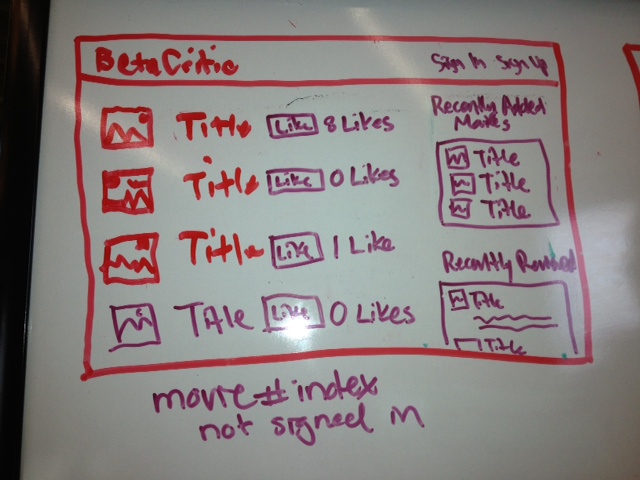 BetaCritic
Sign In Sign Up
Title Like 8 Likes
Title Like 0 Likes
Title Like 1 Like
Title Like 0 Likes
Recently Added
Movies
Title
Title
Title
Recently Reviewed
Title
Title
movie#index
not signed in